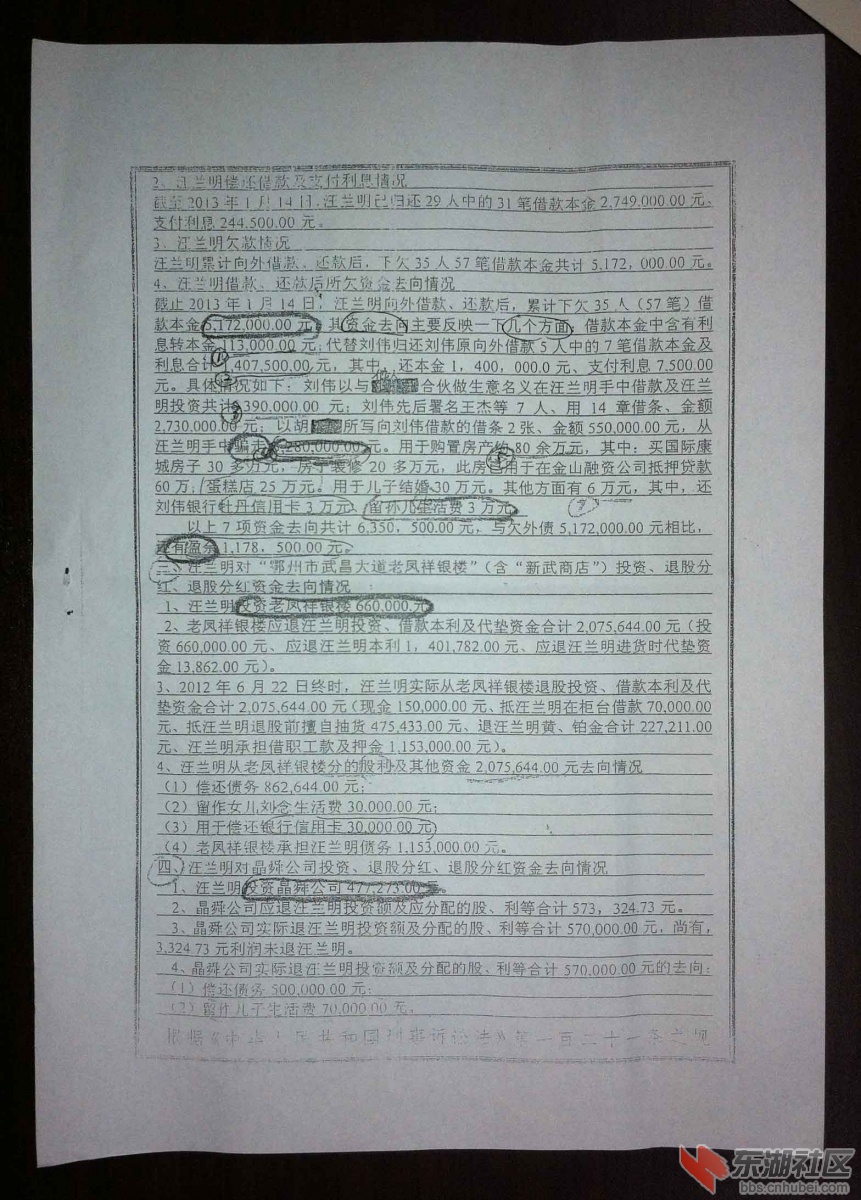 2、汪兰明偿还借款及支付利息情况
截至2013年1月14日,汪兰明已归还29人中的31笔借款本金2,749,000.00元、
支付利息244,500.00元。
3、汪兰明欠款情况
汪兰明累计向外借款、还款后，下欠35人57笔借款本金共计5,172,000.00元。
4、汪兰明借款、还款后所欠资金去向情况
截止2013年1月14日，汪兰明向外借款、还款后，累计下欠35人（57笔）借
款本金5,172,000.00元，其资金去向主要反映一下几个方面，借款本金中含有利
息转本金113,000.00元;代替刘伟归还刘伟原向外借款5人中的7笔借款本金及
利息合计1,407,500.00元，其中，还本金1，400，000.0元、支付利息7,500.00
元。具体情况如下：刘伟以与 合伙做生意名义在汪兰明手中借款及汪兰
明投资共计390,000.00元；刘伟先后署名王杰等7人、用14章借条、金额
2,730,000.00元；以胡 所写向刘伟借款的借条2张、金额550,000.00元，从
汪兰明手中骗走 280,000.00元。用于购置房产约80余万元，其中：买国际康
城房子30多万元，房子装修20多万元，此房目用于在金山融资公司抵押贷款
60万;蛋糕店25万元。用于儿子结婚30万元。其他方面有6万元，其中，还
刘伟银行牡丹信用卡3万元、留孙儿生活费3万元。
以上7项资金去向共计6,350，500.00元，与欠外债5,172,000.00元相比，
还有盈余1,178，500.00元。
三、汪兰明对“鄂州市武昌大道老凤祥银楼”（含“新武商店”）投资、退股分
红、退股分红资金去向情况
1、汪兰明投资老凤祥银楼660,000.元
2、老凤祥银楼应退汪兰明投资、借款本利及代垫资金合计2,075,644.00元（投
资660,000.00元、应退汪兰明本利1，401,782.00元、应退汪兰明进货时代垫资
金13,862.00元）。
3、2012年6月22日终时，汪兰明实际从老凤祥银楼退股投资、借款本利及代
垫资金合计2,075,644.00元（现金150,000.00元、抵汪兰明在柜台借款70,000.00
元、抵汪兰明退股前擅自抽货475,433.00元、退汪兰明黄、铂金合计227,211.00
元、汪兰明承担借职工款及押金1,153,000.00元）。
4、汪兰明从老凤祥银楼分的股利及其他资金2,075,644.00元去向情况
（1）偿还债务862,644.00元；
（2）留作女儿刘念生活费30,000.00元；
（3）用于偿还银行信用卡30,000.00元；
（4）老凤祥银楼承担汪兰明债务1,153,000.00元。
四、汪兰明对晶舜公司投资、退股分红、退股分红资金去向情况
1、汪兰明投资晶舜公司477,273.00元。
2、晶舜公司应退汪兰明投资额及应分配的股、利等合计573，324.73元。
3、晶舜公司实际退汪兰明投资额及分配的股、利等合计570,000.00元，尚有，
3,324.73元利润未退汪兰明。
4、晶舜公司实际退汪兰明投资额及分配的股、利等合计570,000.00元的去向：
（1）偿还债务500,000.00元；
（2）留作儿子生活费70,000.00元。
根据《中华人民共和国刑事诉讼法》第一百二十一条之规
东湖社区
bbs.cnhubei.com